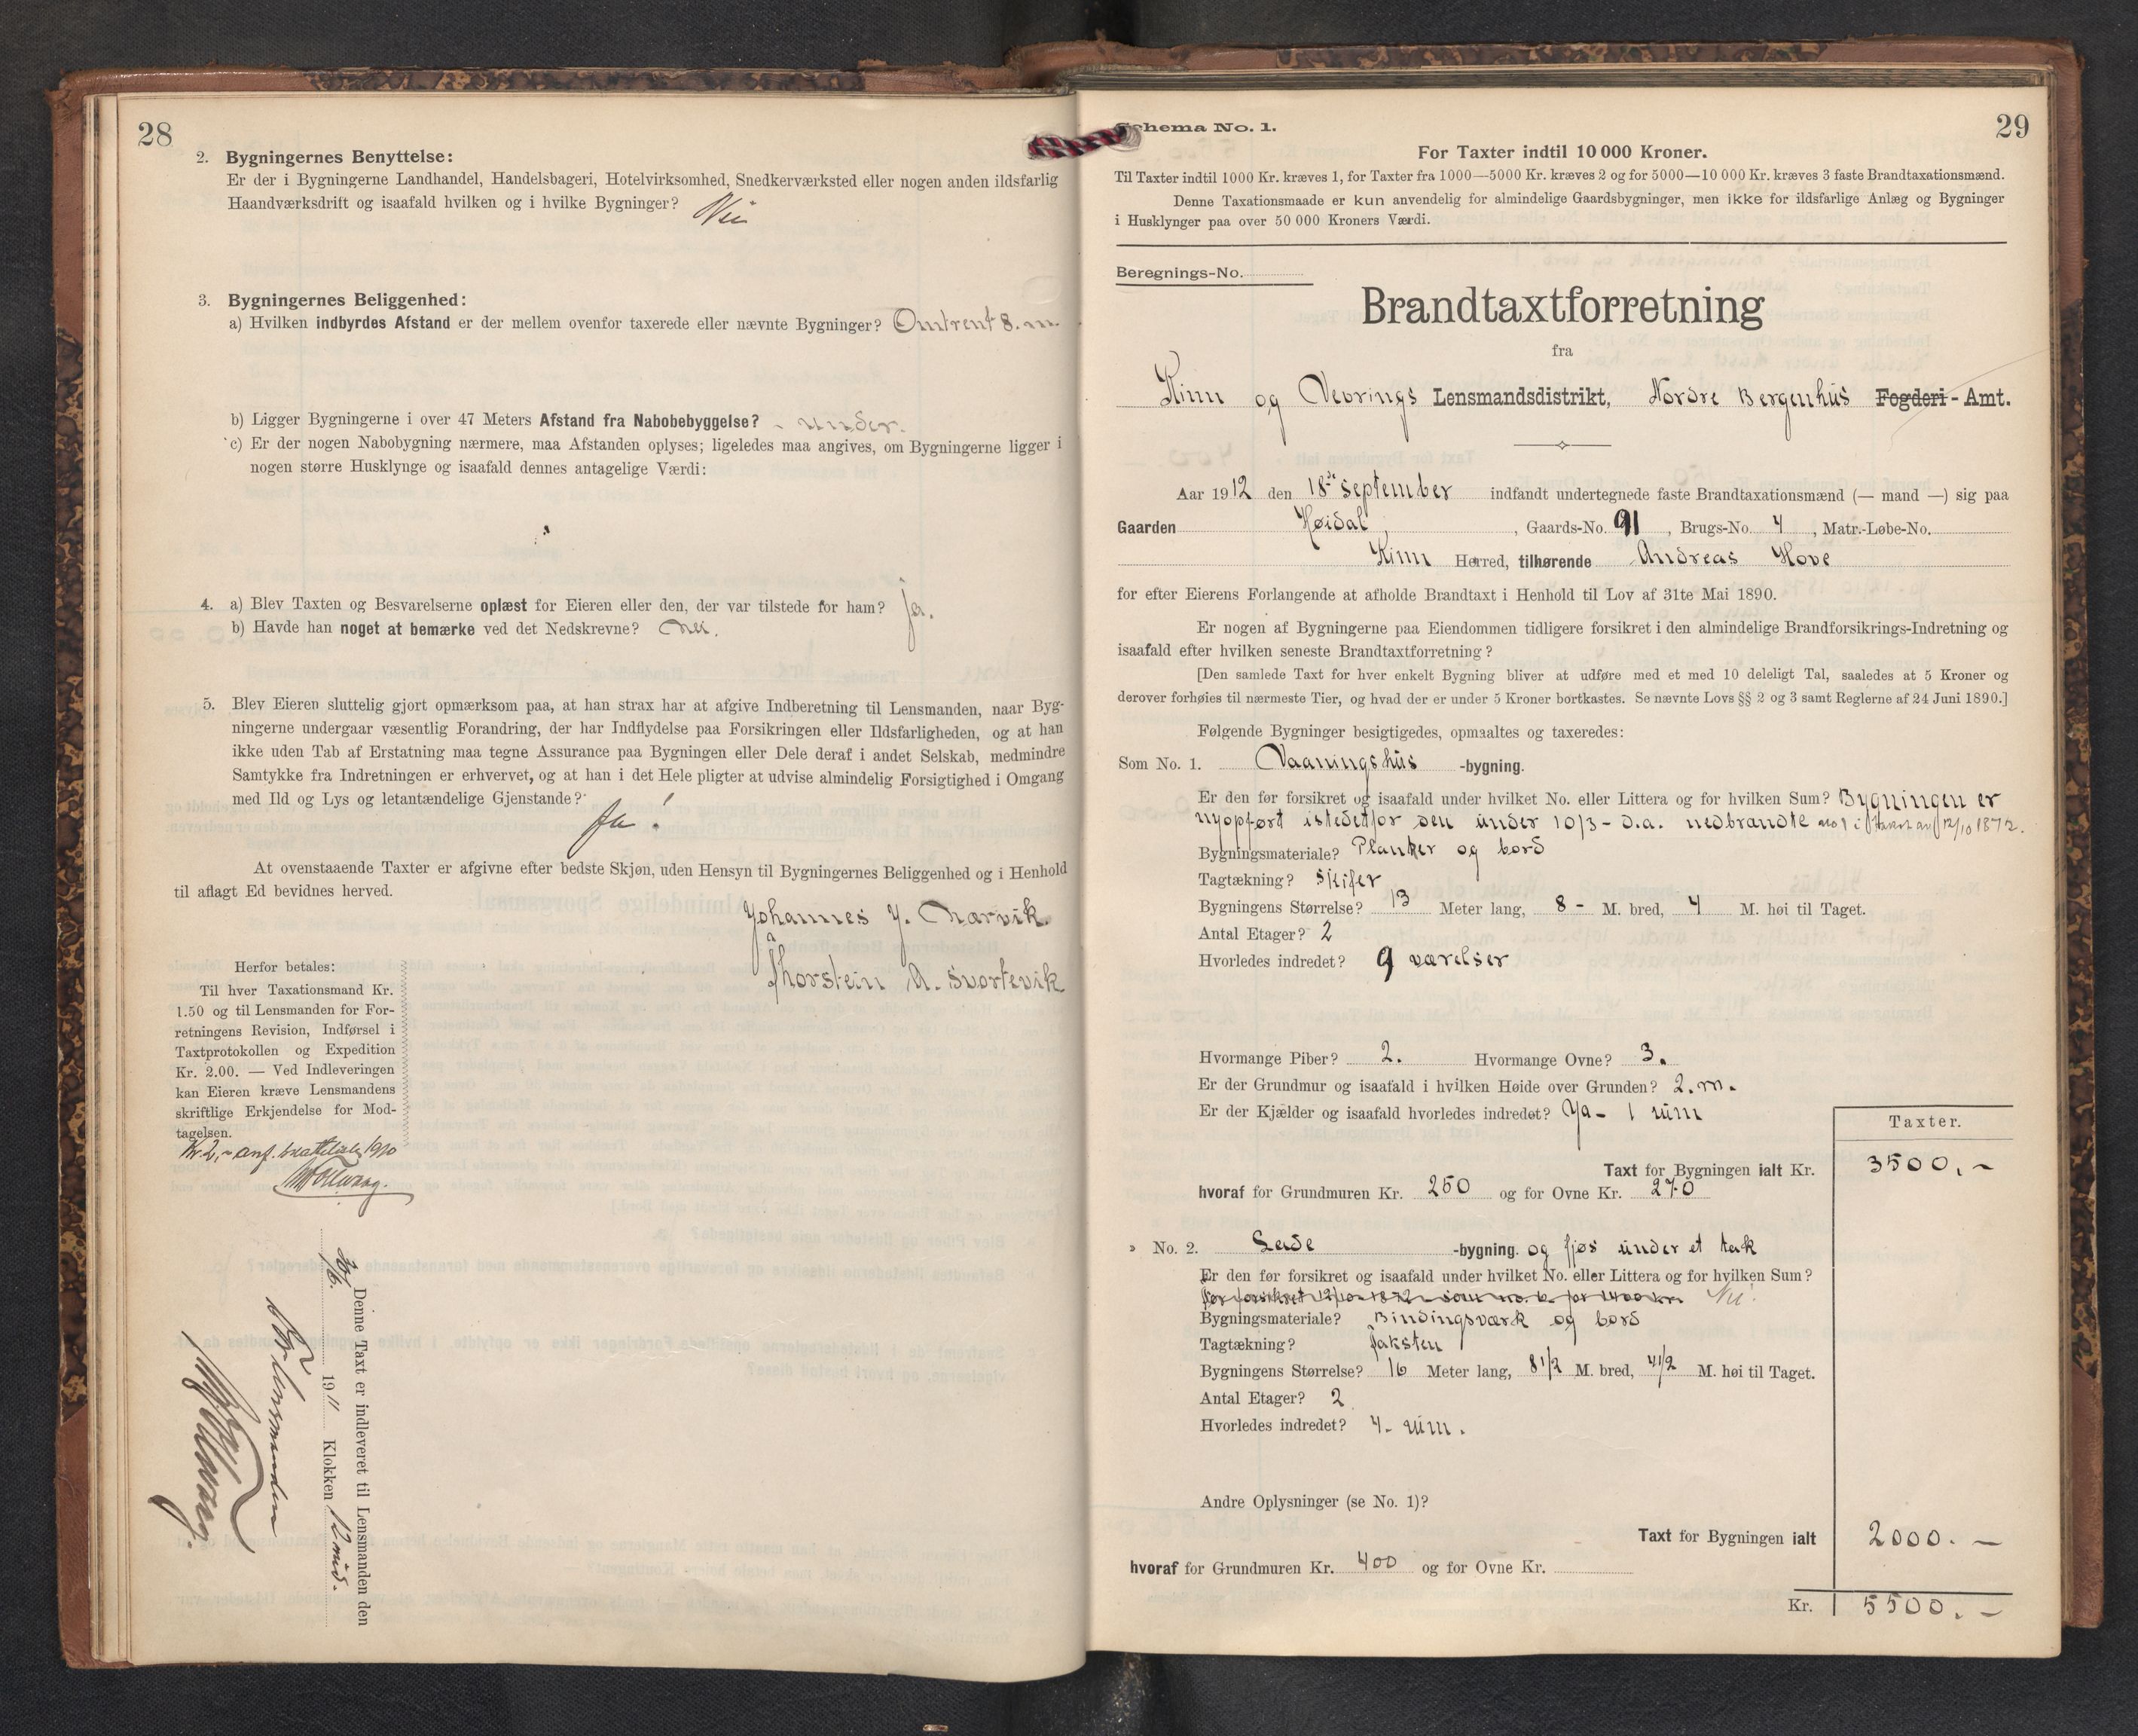 28
2. Bygningernes Benyttelse:
Er der i Bygningerne Landhandel, Handelsbageri, Hotelvirksomhed, Snedkerværksted eller nogen anden ildsfarlig
Haandværksdrift og isaafald hvilken og i hvilke Bygninger? Nei
3. Bygningernes Beliggenhed:
a) Hvilken indbyrdes Afstand er der mellem ovenfor taxerede eller nævnte Bygninger? Omtrent 8. m.
b) Ligger Bygningerne i over 47 Meters Afstand fra Nabobebyggelse? - under.
c) Er der nogen Nabobygning nærmere, maa Afstanden oplyses; ligeledes maa angives, om Bygningerne ligger i
nogen større Husklynge og isaafald dennes antagelige Værdi:
4. a) Blev Taxten og Besvarelserne oplæst for Eieren eller den, der var tilstede for ham? ja.
b) Havde han noget at bemærke ved det Nedskrevne? Nei.
5. Blev Eieren sluttelig gjort opmærksom paa, at han strax har at afgive Indberetning til Lensmanden, naar Byg-
ningerne undergaar væsentlig Forandring, der har Indflydelse paa Forsikringen eller Ildsfarligheden, og at han
ikke uden Tab af Erstatning maa tegne Assurance paa Bygningen eller Dele deraf i andet Selskab, medmindre
Samtykke fra Indretningen er erhvervet, og at han i det Hele pligter at udvise almindelig Forsigtighed i Omgang
med Ild og Lys og letantændelige Gjenstande?
Ja!
At ovenstaaende Taxter er afgivne efter bedste Skjøn, uden Hensyn til Bygningernes Beliggenhed og i Henhold
til aflagt Ed bevidnes herved.
Johannes J. Narvik
Thorstein A. Svortevik
Herfor betales:
Til hver Taxationsmand Kr.
1.50 og til Lensmanden for For-
retningens Revision, Indførsel i
Taxtprotokollen og Expedition
Kr. 2.00. — Ved Indleveringen
kan Eieren kræve Lensmandens
skriftlige Erkjendelse for Mod-
tagelsen.
Kr. 2,- anf. 1910
Denne Taxt er indleveret til Lensmanden den
1911 Klokken 12 mid.
Lensmanden
Schema No. 1.
29
For Taxter indtil 10 000 Kroner.
Til Taxter indtil 1000 Kr. kræves 1, for Taxter fra 1000—5000 Kr. kræves 2 og for 5000—10 000 Kr. kræves 3 faste Brandtaxationsmænd.
Denne Taxationsmaade er kun anvendelig for almindelige Gaardsbygninger, men ikke for ildsfarlige Anlæg og Bygninger
i Husklynger paa over 50 000 Kroners Værdi.
Beregnings-No.
Brandtaxtforretning
fra
Kinn og Vevrings Lensmandsdistrikt, Nordre Bergenhus Fogderi-Amt.
Aar 1912 den 18de September indfandt undertegnede faste Brandtaxationsmænd (— mand —) sig paa
Gaarden Høidal, Gaards-No. 91, Brugs-No. 4, Matr.-Løbe-No.
Kinn Herred, tilhørende Andreas Hove
for efter Eierens Forlangende at afholde Brandtaxt i Henhold til Lov af 31te Mai 1890.
Er nogen af Bygningerne paa Eiendommen tidligere forsikret i den almindelige Brandforsikrings-Indretning og
isaafald efter hvilken seneste Brandtaxtforretning?
[Den samlede Taxt for hver enkelt Bygning bliver at udføre med et med 10 deleligt Tal, saaledes at 5 Kroner og
derover forhøies til nærmeste Tier, og hvad der er under 5 Kroner bortkastes. Se nævnte Lovs §§ 2 og 3 samt Reglerne af 24 Juni 1890.]
Følgende Bygninger besigtigedes, opmaaltes og taxeredes:
Som No. 1. Vaaningshus -bygning.
Er den før forsikret og isaafald under hvilket No. eller Littera og for hvilken Sum? Bygningen er
nyopført istedetfor den under 10/3 - d.a. nedbrandte no 1 i Takst av 12/10 1872.
Bygningsmateriale? Planker og bord
Tagtækning? Skifer
Bygningens Størrelse? 13 Meter lang, 8 - M. bred, 4 M. høi til Taget.
Antal Etager? 2
Hvorledes indredet? 9 værelser
Hvormange Piber? 2. Hvormange Ovne? 3.
Er der Grundmur og isaafald i hvilken Høide over Grunden? 2. m.
Er der Kjælder og isaafald hvorledes indredet? Ja - 1 rum
Taxter.
Taxt for Bygningen ialt Kr. 3500.-
hvoraf for Grundmuren Kr. 250 og for Ovne Kr. 270
» No. 2. Lade -bygning. og fjøs under et tak
Er den før forsikret og isaafald under hvilket No. eller Littera og for hvilken Sum?
Før forsikret 12/10-1872 som no. 6. for 1400 kr. Nei.
Bygningsmateriale? Bindingsværk og bord
Tagtækning? Taksten
Bygningens Størrelse? 16 Meter lang, 8 1/2 M. bred, 4 1/2 M. høi til Taget.
Antal Etager? 2
Hvorledes indredet? 4. rum.
Andre Oplysninger (se No. 1)?
Taxt for Bygningen ialt 2000.-
hvoraf for Grundmuren Kr. 400 og for Ovne Kr.
Kr. 5500.-